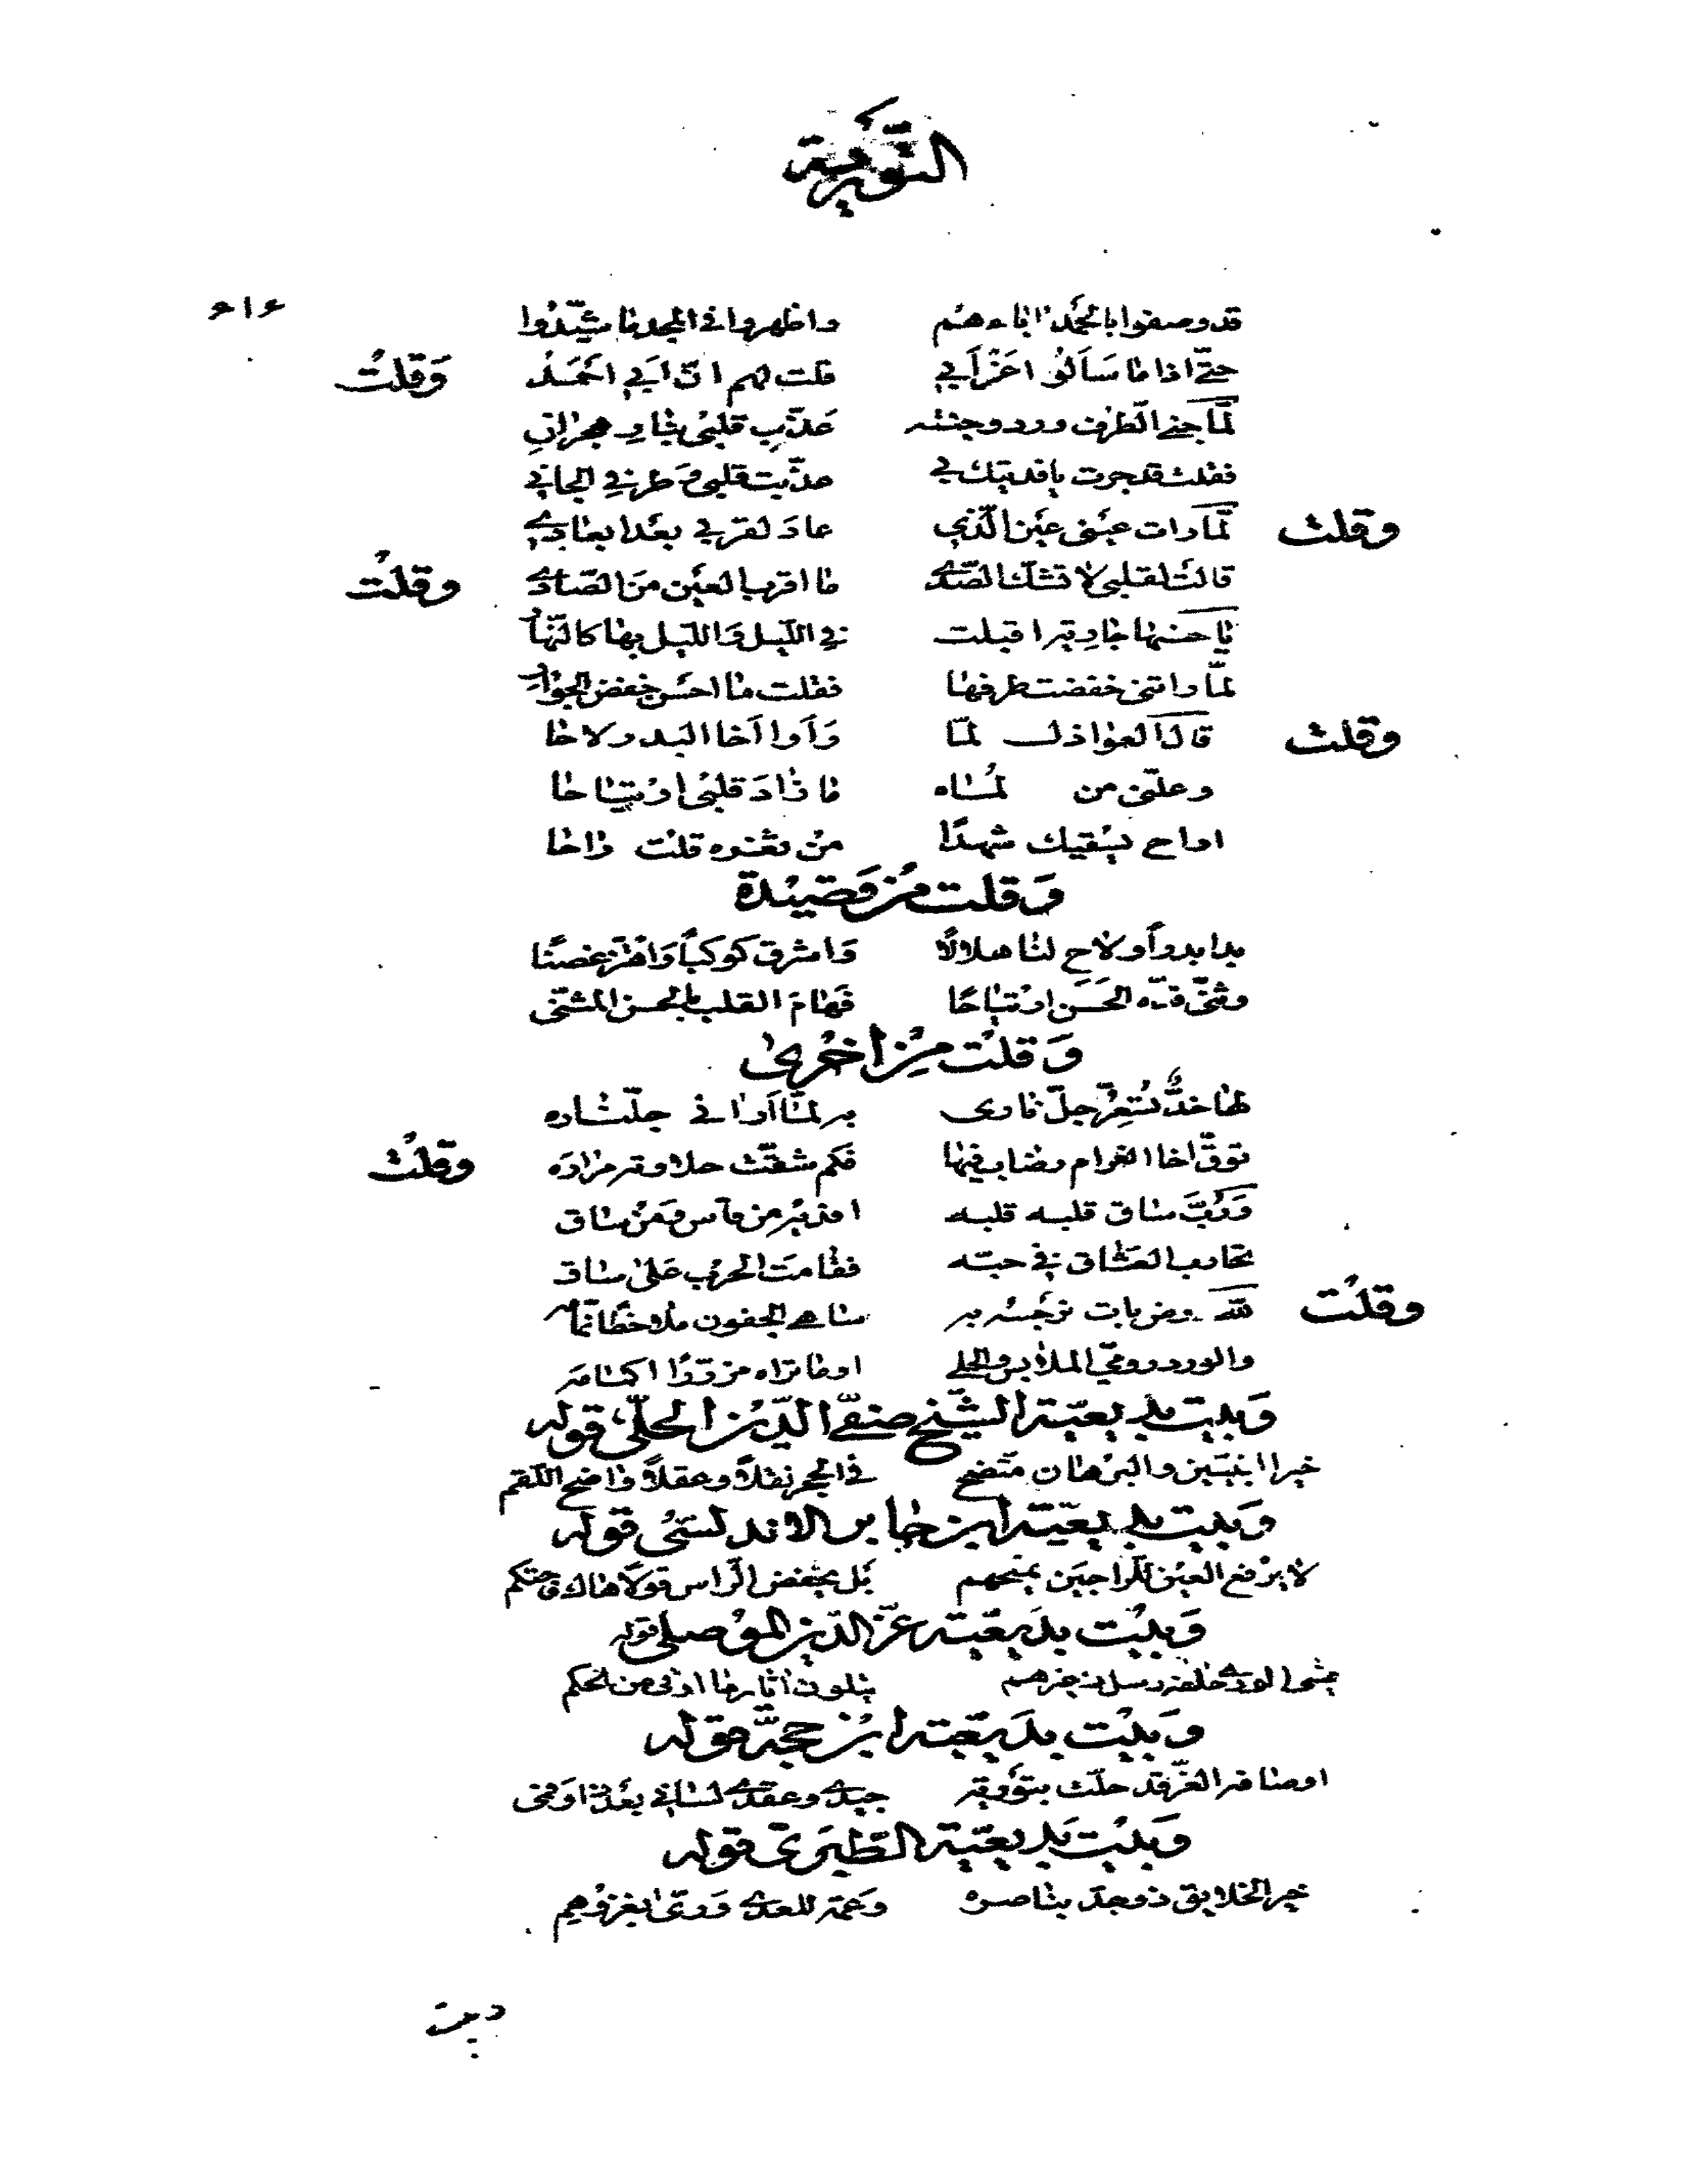 التورية
٤١٤
قد وصفوا بالحمد اباءهم واظهروا في المجد ما شيدوا
حتى اذا ما سألوا عن أبي قلت لهم ان ابي احمد وقلت
لما جنى الطرف ورد وجنته عذب قلبي بنار هجراني
فقلت قد جرت يا فديتك في عذبت قلبي وطرفي الجاني
وقلت لما رات عيني عين الذي عاد لقربي بعد ابعادي
قالت لقلبي لا تشك الصدى ما اقرب العين من الصادي وقلت
يا حسنها جارية اقبلت في الليل والليل بها كالنهار
لما راتني خفضت طرفها فقلت ما احسن خفض الجوار
وقلت قال العواذل لما رأوا أخا البدر لاحا
وعلني من لماه ما زاد قلبي ارتياحا
اراح يسقيك شهدا من ثغره قلت راحا
وقلت من قصيدة
بدا بدراً ولاح لنا هلالا واشرق كوكباً واهتز غصنا
وثنى قده الحسن ارتياحا فهام القلب بالحسن المثنى
وقلت من اخرى
لها خدٌّ تسعر جل نارى به لما أرانى جلّناره
توقّ اخا الغرام رضاب فيها فكم شقت حلاوته مراره وقلت
وربّ ساق قلبه قلبه افديه من قاس ومن ساق
تحارب العشاق في حبه فقامت الحرب على ساق
وقلت لله روض بات نرجسه به ساهي الجفون ملاحظا نمامه
والورد رومي الملابس والحلي اوما تراه مزررا اكمامه
وبيت بديعية الشيخ صفي الدين الحلي قوله
خير النبيين والبرهان متضح في الحجر نقلاً وعقلاً واضح اللقم
وبيت بديعية ابن جابر الاندلسي قوله
لا يرفع العين للراجين يمنحهم بل يخفض الراس قولا هاك فاحتكم
وبيت بديعية عز الدين الموصلي قوله
وبيت بديعية ابن حجة قوله
اوصافه الغر قد حلت بتورية جيدي وعقدي لساني بعد ذا وفمي
وبيت بديعية الطبري قوله
خير الخلايق ذو مجد بناصره
وبيت